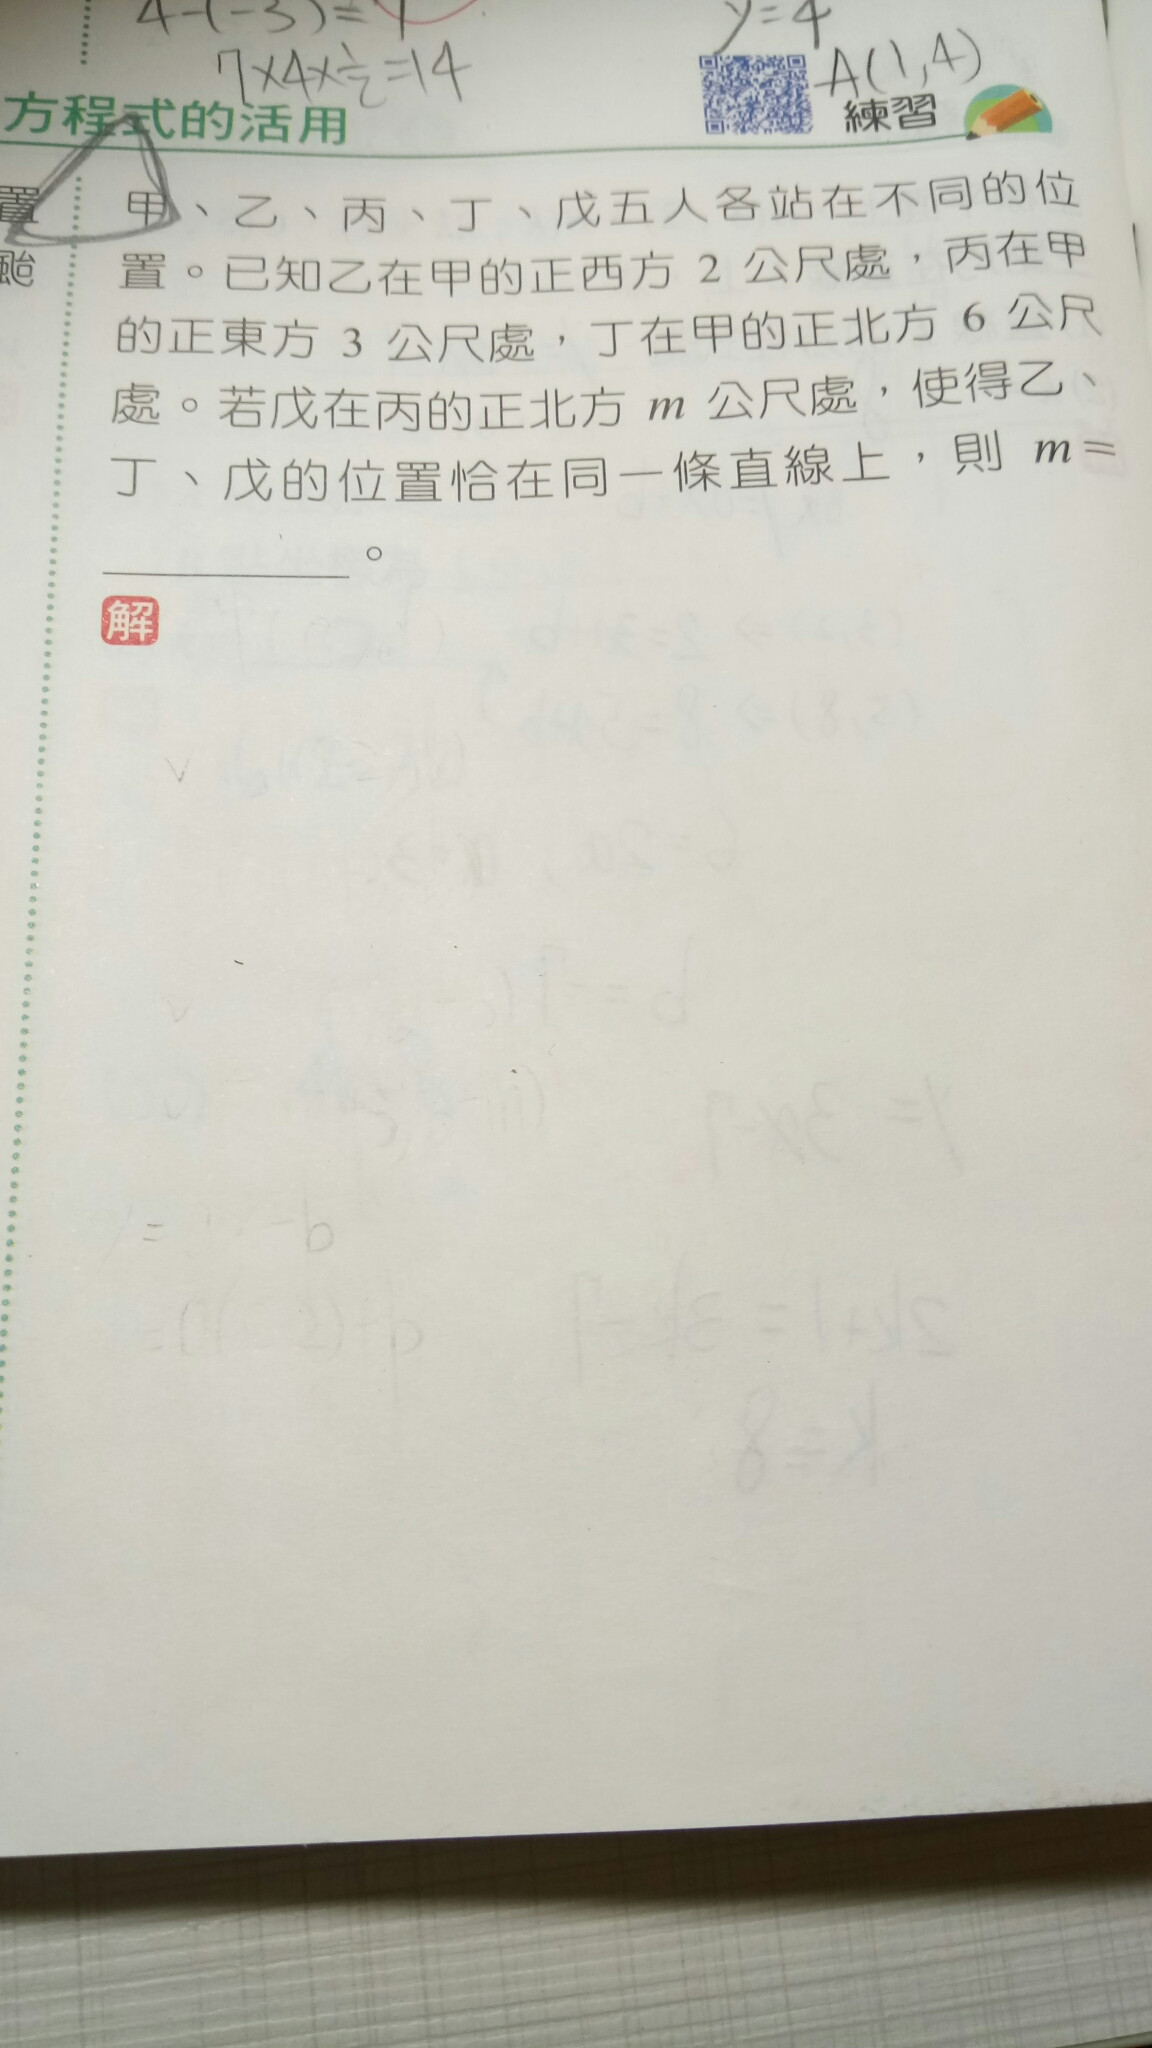 4-(-3)=7
y=4
7×4×½=14
A(1,4)
方程式的活用
練習
置
甲、乙、丙、丁、戊五人各站在不同的位
颱
置。已知乙在甲的正西方 2 公尺處,丙在甲
的正東方 3 公尺處,丁在甲的正北方 6 公尺
處。若戊在丙的正北方 m 公尺處,使得乙、
丁、戊的位置恰在同一條直線上,則 m=
。
解